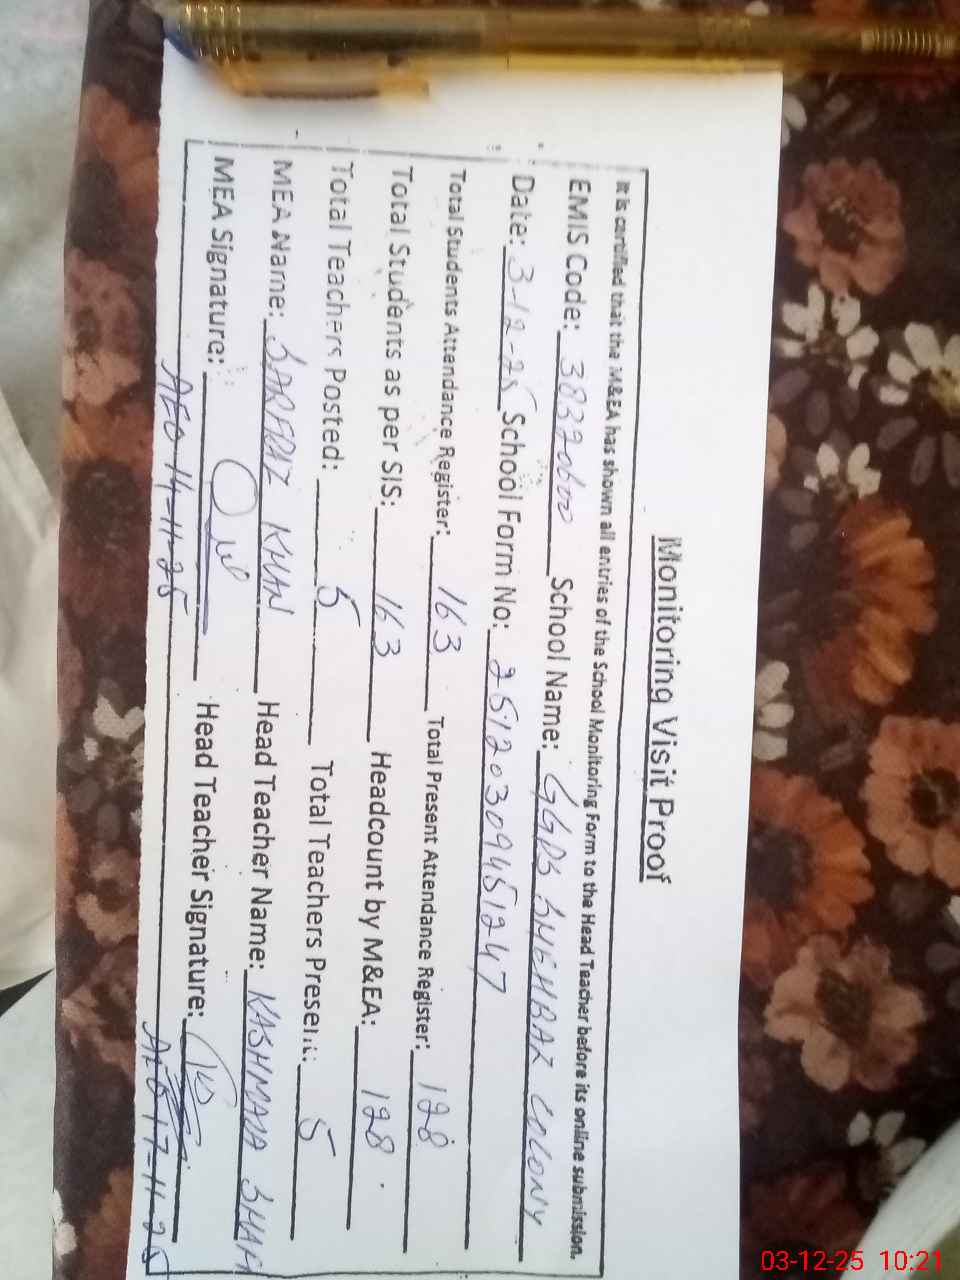 Monitoring Visit Proof
It is certified that the M&EA has shown all entries of the School Monitoring Form to the Head Teacher before its online submission.
EMIS Code: 38320600 School Name: GGPS SHEHBAZ COLONY
Date: 3-12-25 School Form No: 25120309451247
Total Students Attendance Register: 163 Total Present Attendance Register: 128
Total Students as per SIS: 163 Headcount by M&EA: 128
Total Teachers Posted: 5 Total Teachers Present: 5
MEA Name: SARFRAZ KHAN Head Teacher Name: KASHMALA
MEA Signature: Head Teacher Signature:
AEO 14-11-25 AEO 17-11-25
03-12-25 10:21